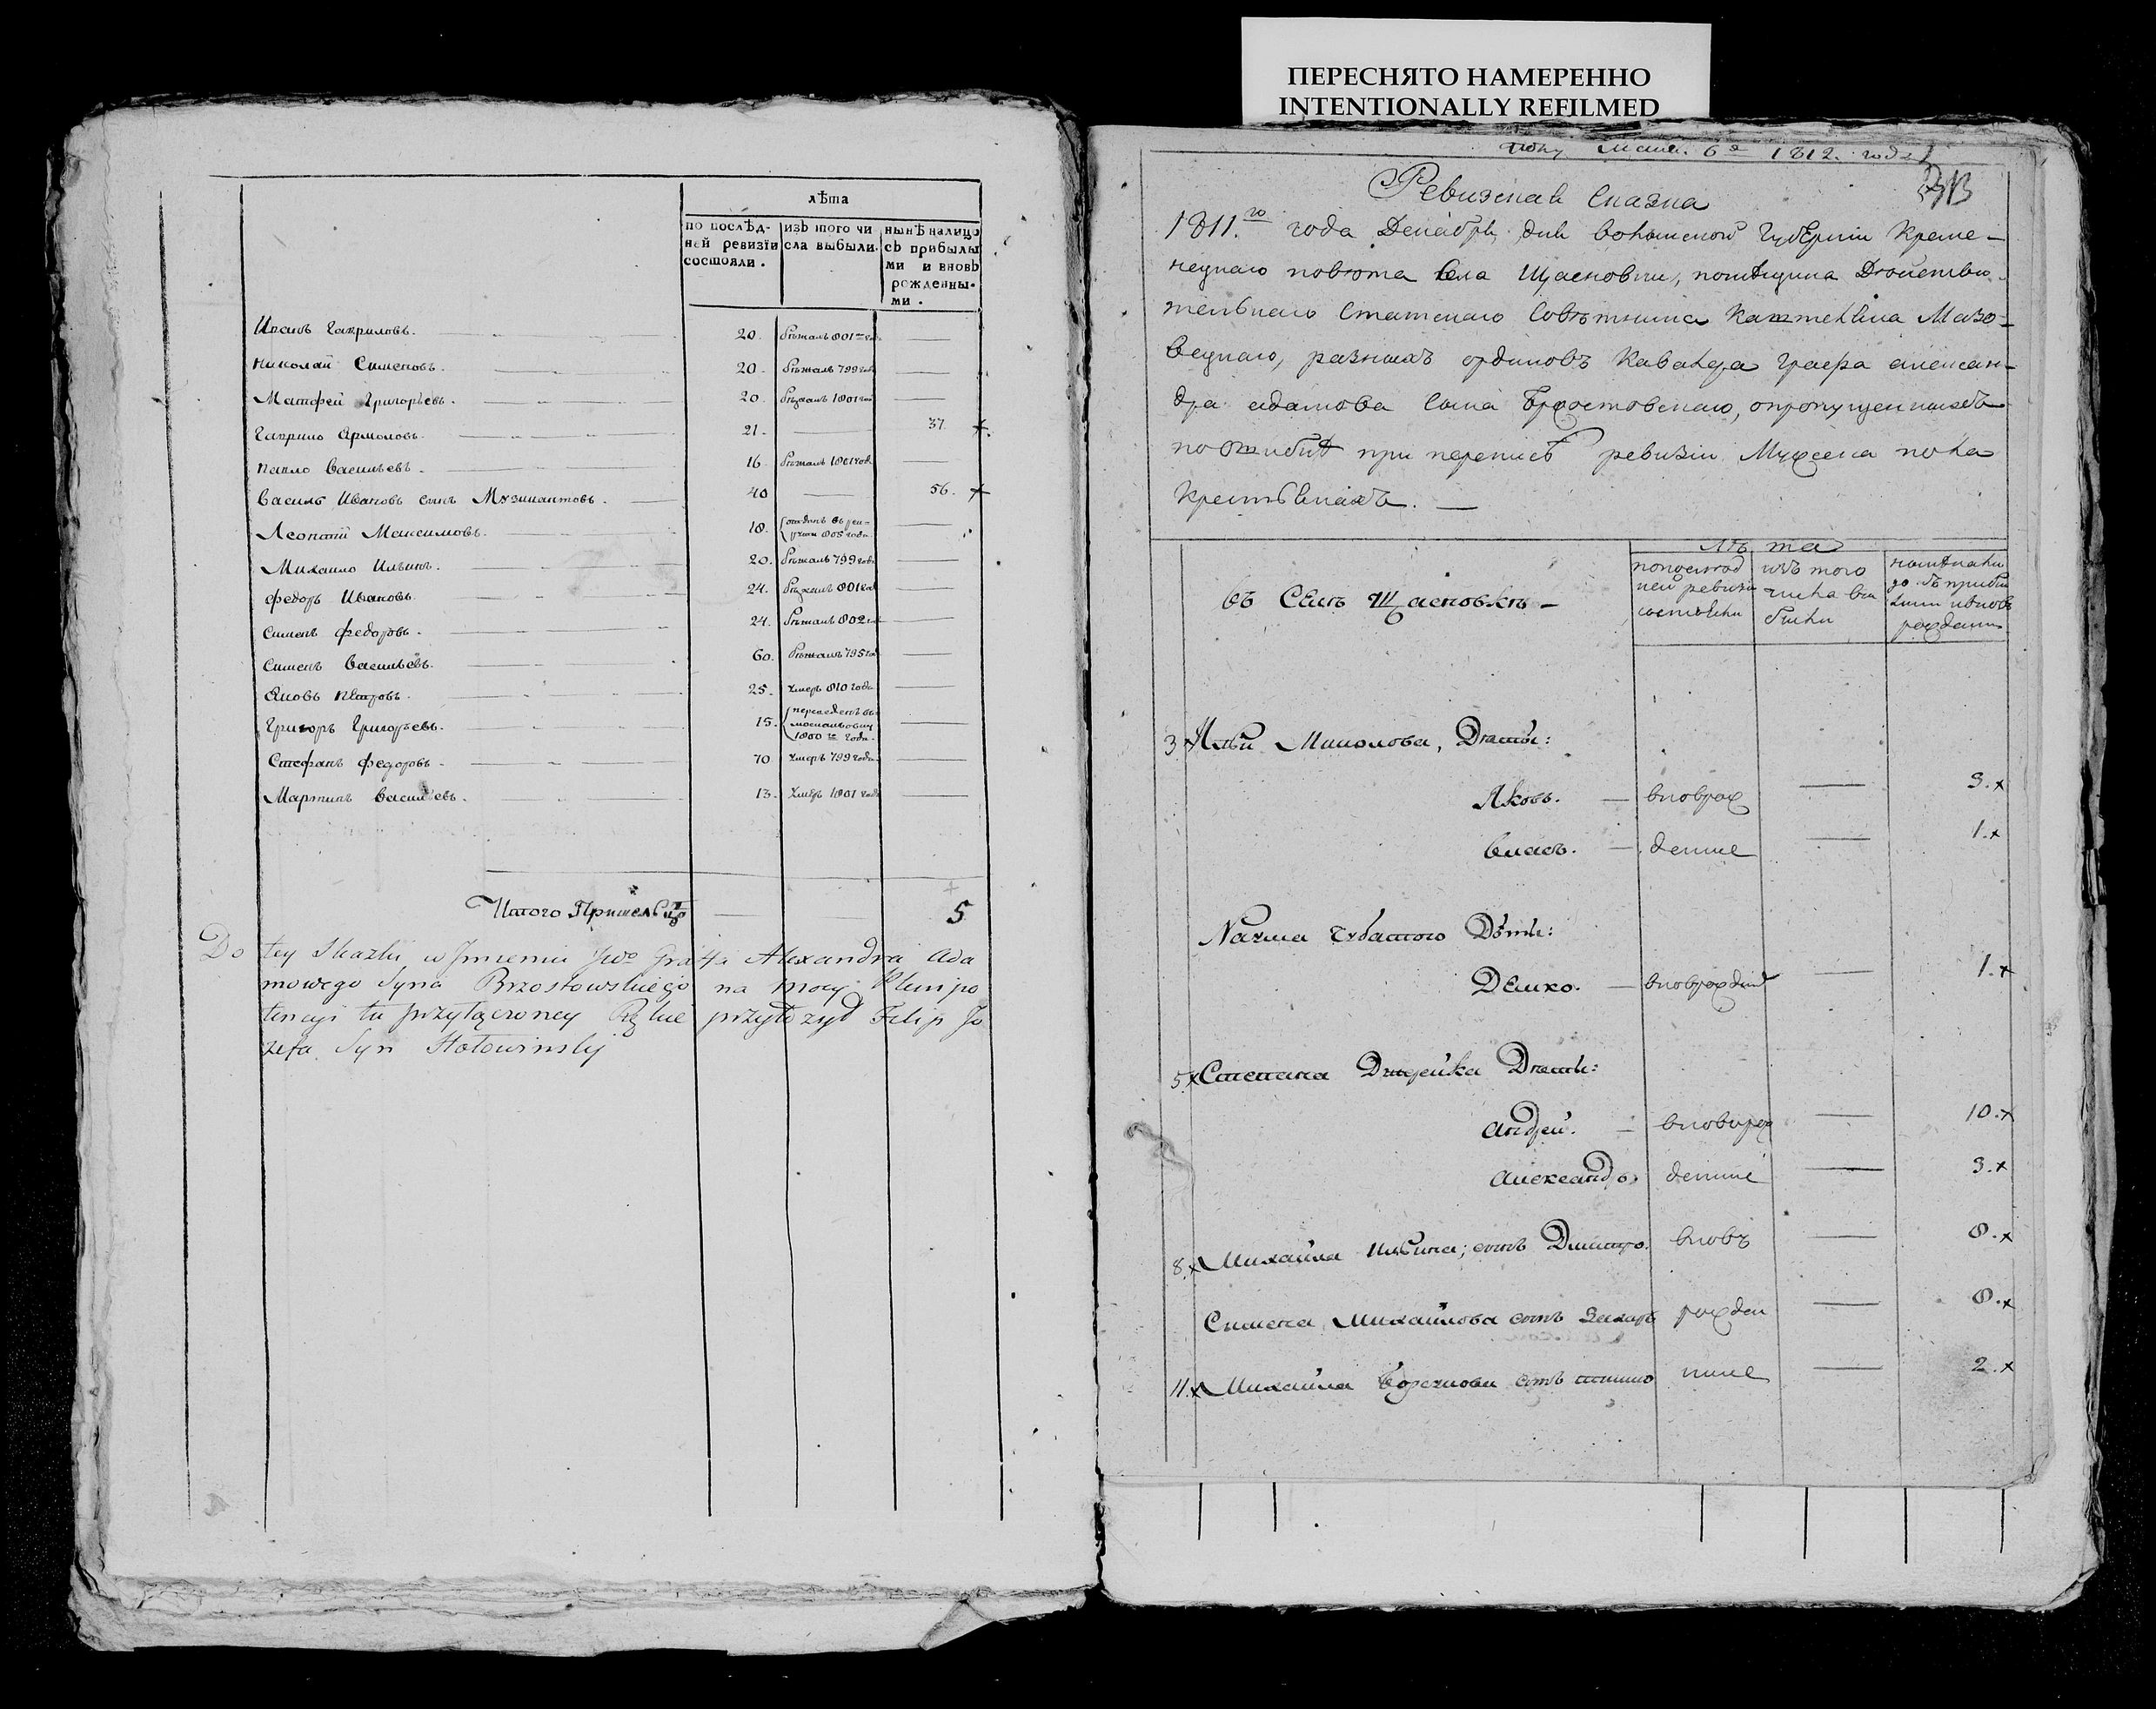 ПЕРЕСНЯТО НАМЕРЕННО
INTENTIONALLY REFILMED
лѣта
по послѣд-
ней ревизіи
состояли.
изъ того чи
сла выбыли.
нынѣ налицо
съ прибылы
ми и вновь
рожденны-
ми.
Иванъ Гавриловъ. 20. бѣжалъ 801го
Николай Сименовъ. 20. бѣжалъ 799 год
Матфей Григорьевъ. 20. бѣжалъ 1801
Гаврило Ярмоловъ. 21. 37. х.
Павло Васильевъ. 16. бѣжалъ 1801 год
Василь Ивановъ сынъ 40 56. х
Леонтій Максимовъ. 18. отданъ въ рек-
руты 805 года.
Михайло Ильинъ. 20. бѣжалъ 799 год
Федоръ Ивановъ. 24. бѣжалъ 801 год
Сименъ Федоровъ. 24. бѣжалъ 802
Сименъ Васильевъ. 60. бѣжалъ 795 год
Яковъ Петровъ. 25. умеръ 810 года
Григоръ Григорьевъ. 15. переведенъ въ
1800го года.
Стефанъ Федоровъ. 70 умеръ 799 года
Мартинъ Васильевъ. 13. умеръ 1801 года
Итого 5
Do tey Skazki w Jmieniu Jwo Graffa Alexandra Ada
mowego Syna Brzostowskiego na mocy Plenipo
tencyi tu przyłączoney Rękę przyłożył Filip Jo
zefa Syn Hołowinsky
6го 1812. года
Ревизская Сказка
1811.го года Декабря дня Волынской Губерніи Креме-
нецкаго повѣта села Щасновки, помѣщика Дѣйстви-
тельнаго Статскаго Совѣтника Мазо-
вецкаго, разныхъ ординовъ Кавалера Графа Алексан-
дра Адамова сына Бржостовскаго, о пропущенныхъ
по ошибкѣ при переписѣ ревизіи Мужеска пола
Крестьянахъ.
Лѣта
по послѣд
ней ревизіи
состояли
изъ того
числа вы
были
нынѣ на ли
цо съ прибы
лыми и вновь
рожденны
Въ Селѣ Щасновкѣ -
3.х Ильи Миколова, Дѣти:
Яковъ. вноврож 3.х
Власъ. денные 1.х
Наума Чубатого Дѣти:
Демко. вноврожден 1.х
5.х Степана Дѣти:
Андрей. вноврож 10.х
Александр денные 3.х
8.х Михайла Ильина, сынъ Дмитро. вновь 8.х
Симена Михайлова сынъ Захаръ рожден 8.х
11.х Михайла сынъ ные 2.х